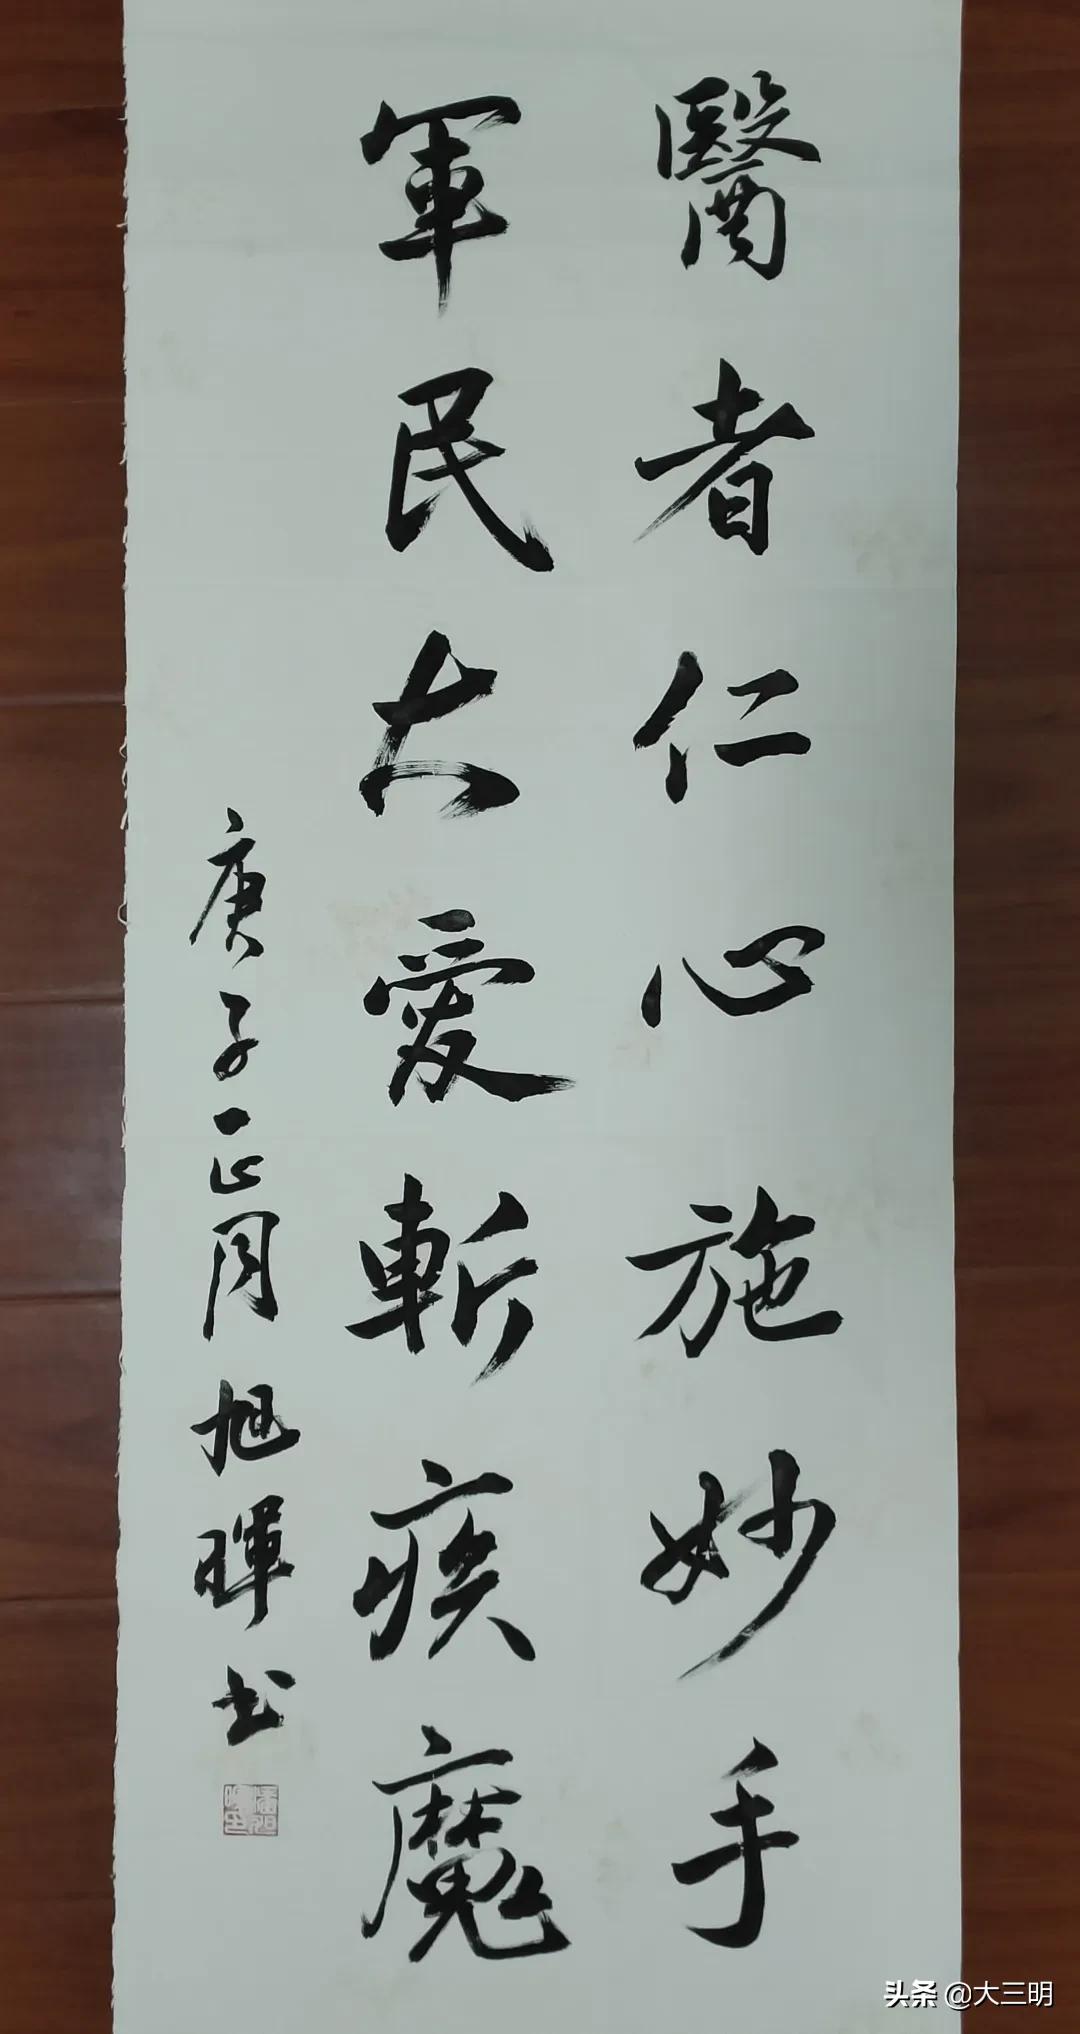 醫者仁心施妙手
軍民大愛斬疾魔
庚子正月旭暉书
头条 @大三明